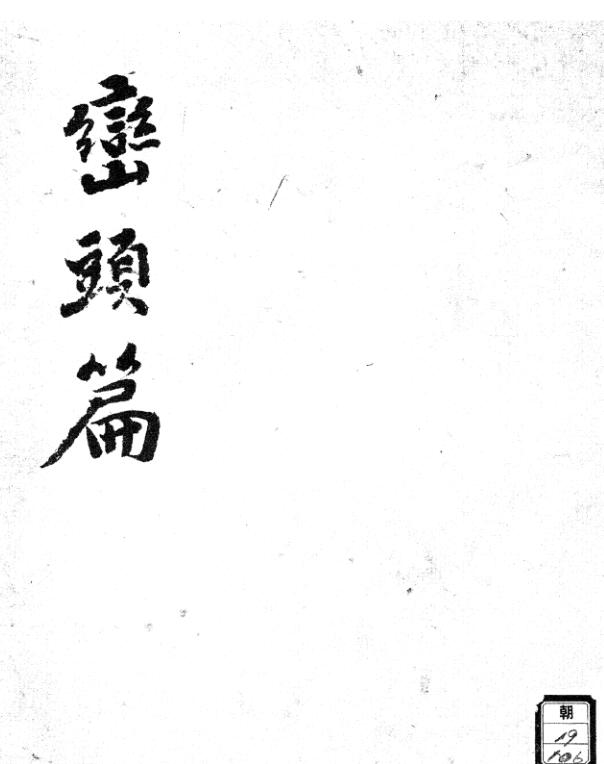 巒頭篇
朝
19
106